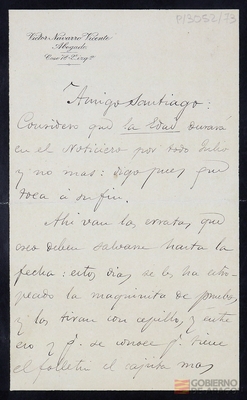 P/3052/73
Victor Navarro Vicente
Abogado
Coso 18 - 2º izqª
Amigo Santiago:
Considero que la Edad durará
en el Noticiero por todo Julio
y no mas: digo pues que
toca á su fin.
Ahi van las erratas que
creo deben salvarse hasta la
fecha: estos dias se les ha
la maquinita de pruebas
y las tiran con cepillo, y
y p. se conoce q. tiene
el folletin el cajista mas
GOBIERNO
DE ARAGON